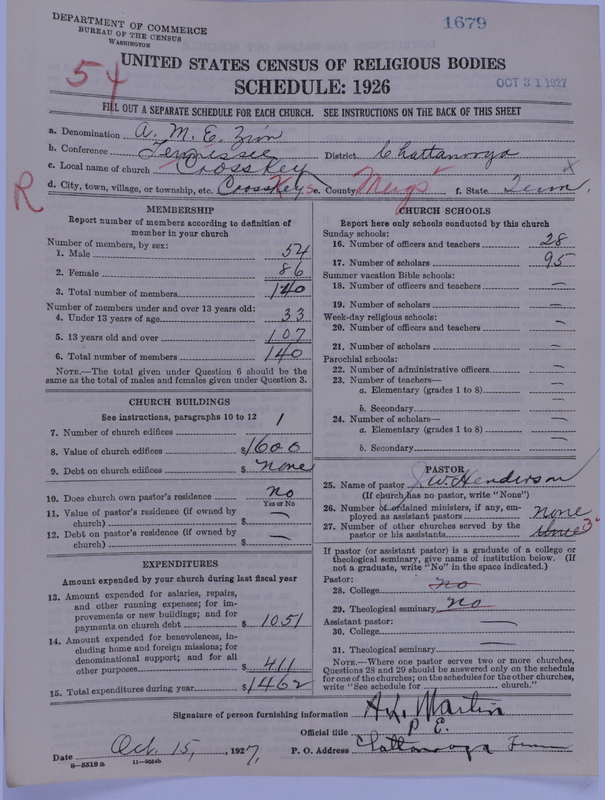 DEPARTMENT OF COMMERCE
BUREAU OF THE CENSUS
WASHINGTON
1679
UNITED STATES CENSUS OF RELIGIOUS BODIES
54
SCHEDULE: 1926
OCT 31 1927
FILL OUT A SEPARATE SCHEDULE FOR EACH CHURCH. SEE INSTRUCTIONS ON THE BACK OF THIS SHEET
a. Denomination A. M. E. Zion
b. Conference Tennissee District Chattanooga
c. Local name of church Cross Key
R
d. City, town, village, or township, etc. Cross Keys e. County Meigs f. State Tenn. x
MEMBERSHIP
Report number of members according to definition of
member in your church
Number of members, by sex:
1. Male 54
2. Female 86
3. Total number of members 140
Number of members under and over 13 years old:
4. Under 13 years of age 33
5. 13 years old and over 107
6. Total number of members 140
NOTE.—The total given under Question 6 should be
same as the total of males and females given under Question 3.
CHURCH BUILDINGS
See instructions, paragraphs 10 to 12
7. Number of church edifices 1
8. Value of church edifices $1600
9. Debt on church edifices $ none
10. Does church own pastor's residence no
Yes or No
11. Value of pastor's residence (if owned by
church) $ —
12. Debt on pastor's residence (if owned by
church) $ —
EXPENDITURES
Amount expended by your church during last fiscal year
13. Amount expended for salaries, repairs,
and other running expenses; for im-
provements or new buildings; and for
payments on church debt $ 1051
14. Amount expended for benevolences, in-
cluding home and foreign missions; for
denominational support; and for all
other purposes $ 411
15. Total expenditures during year $1462
CHURCH SCHOOLS
Report here only schools conducted by this church
Sunday schools:
16. Number of officers and teachers 28
17. Number of scholars 95
Summer vacation Bible schools:
18. Number of officers and teachers —
19. Number of scholars —
Week-day religious schools:
20. Number of officers and teachers —
21. Number of scholars —
Parochial schools:
22. Number of administrative officers —
23. Number of teachers—
a. Elementary (grades 1 to 8) —
b. Secondary —
24. Number of scholars—
a. Elementary (grades 1 to 8) —
b. Secondary —
PASTOR
25. Name of pastor J. W. Henderson
(If church has no pastor, write "None")
26. Number of ordained ministers, if any, em-
ployed as assistant pastors none
27. Number of other churches served by the
pastor or his assistants 3
If pastor (or assistant pastor) is a graduate of a college or
theological seminary, give name of institution below. (If
not a graduate, write "No" in the space indicated.)
Pastor:
28. College no
29. Theological seminary no
Assistant pastor:
30. College —
31. Theological seminary —
NOTE.—Where one pastor serves two or more churches,
Questions 28 and 29 should be answered only on the schedule
for one of the churches; on the schedules for the other churches,
write "See schedule for ________ church."
Signature of person furnishing information A. L. Martin
Official title P. E.
Date Oct. 15, 1927, P. O. Address Chattanooga Tenn
8—5518a 11—9624b